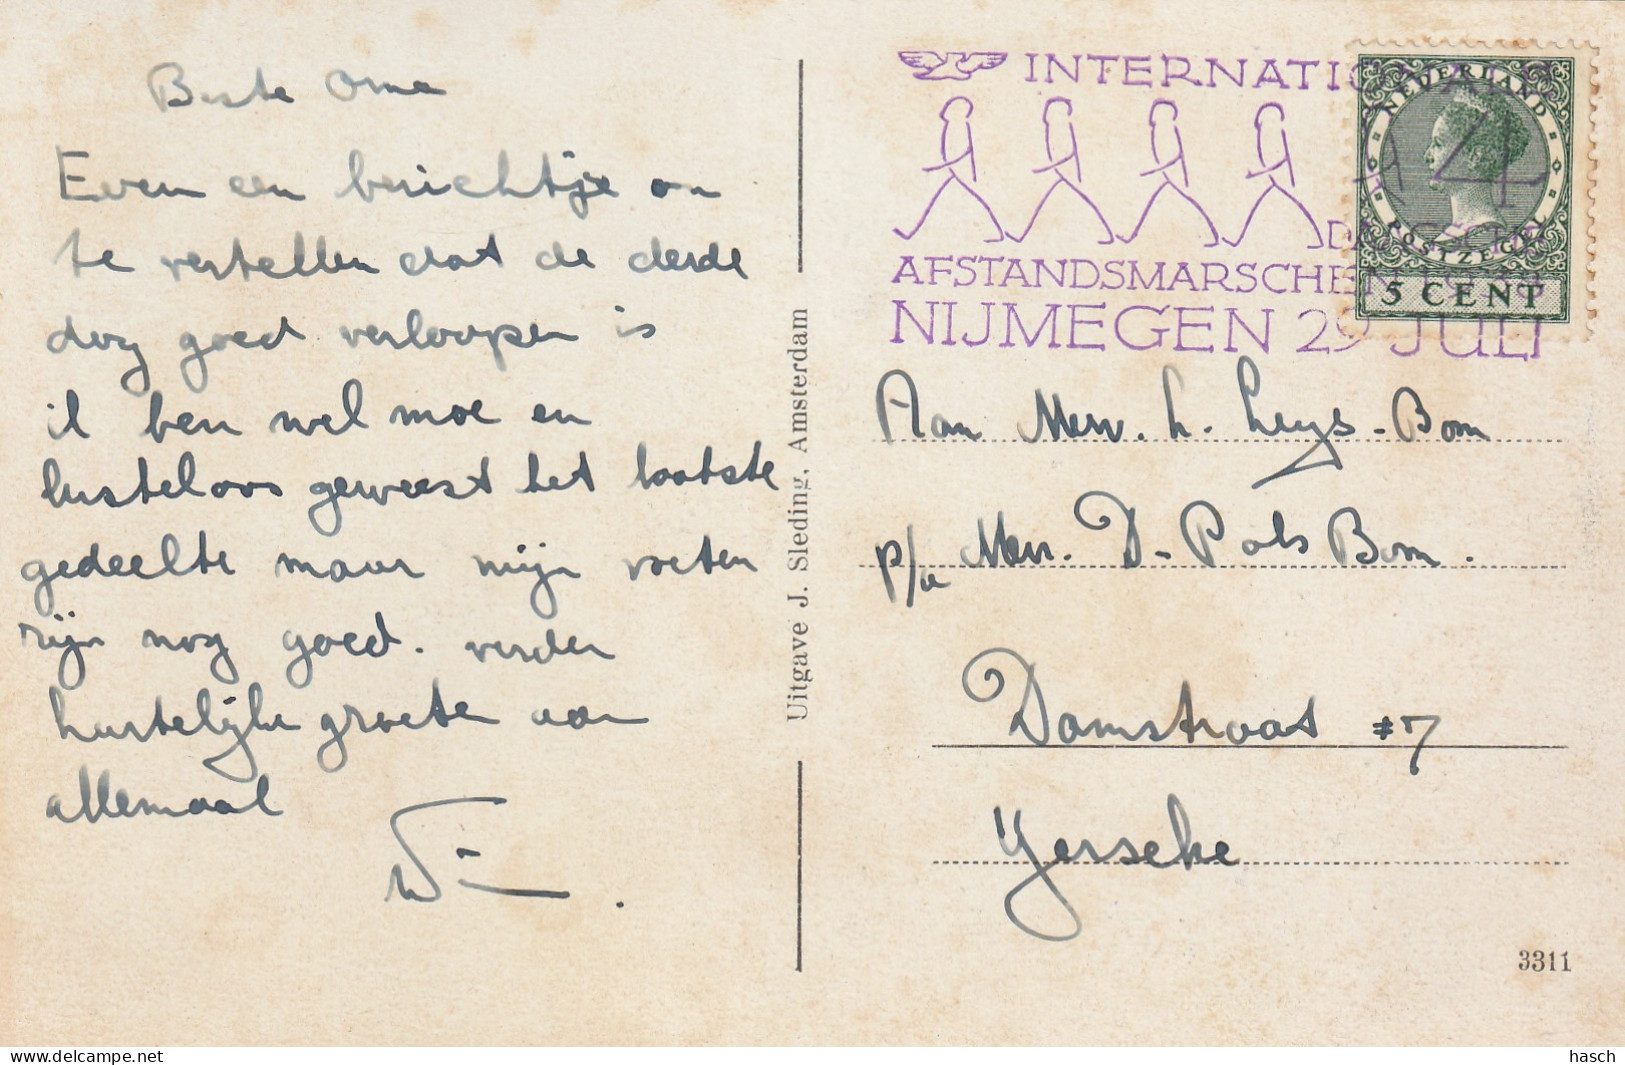 Beste Oma
Even een berichtje om
te vertellen dat de derde
dag goed verloopen is
ik ben wel moe en
lusteloos geweest het laatste
gedeelte maar mijn voeten
zijn nog goed. verder
hartelijke groeten aan
allemaal
Wim.
Uitgave J. Sleding, Amsterdam
INTERNATIONALE
4
AFSTANDSMARSCHEN
NIJMEGEN 29 JULI
NEDERLAND
POSTZEGEL
5 CENT
Aan Mevr. L. Leys-Bom
p/a Mevr. D. Pols Bom.
Damstraat 7
Yerseke
3311
www.delcampe.net
hasch